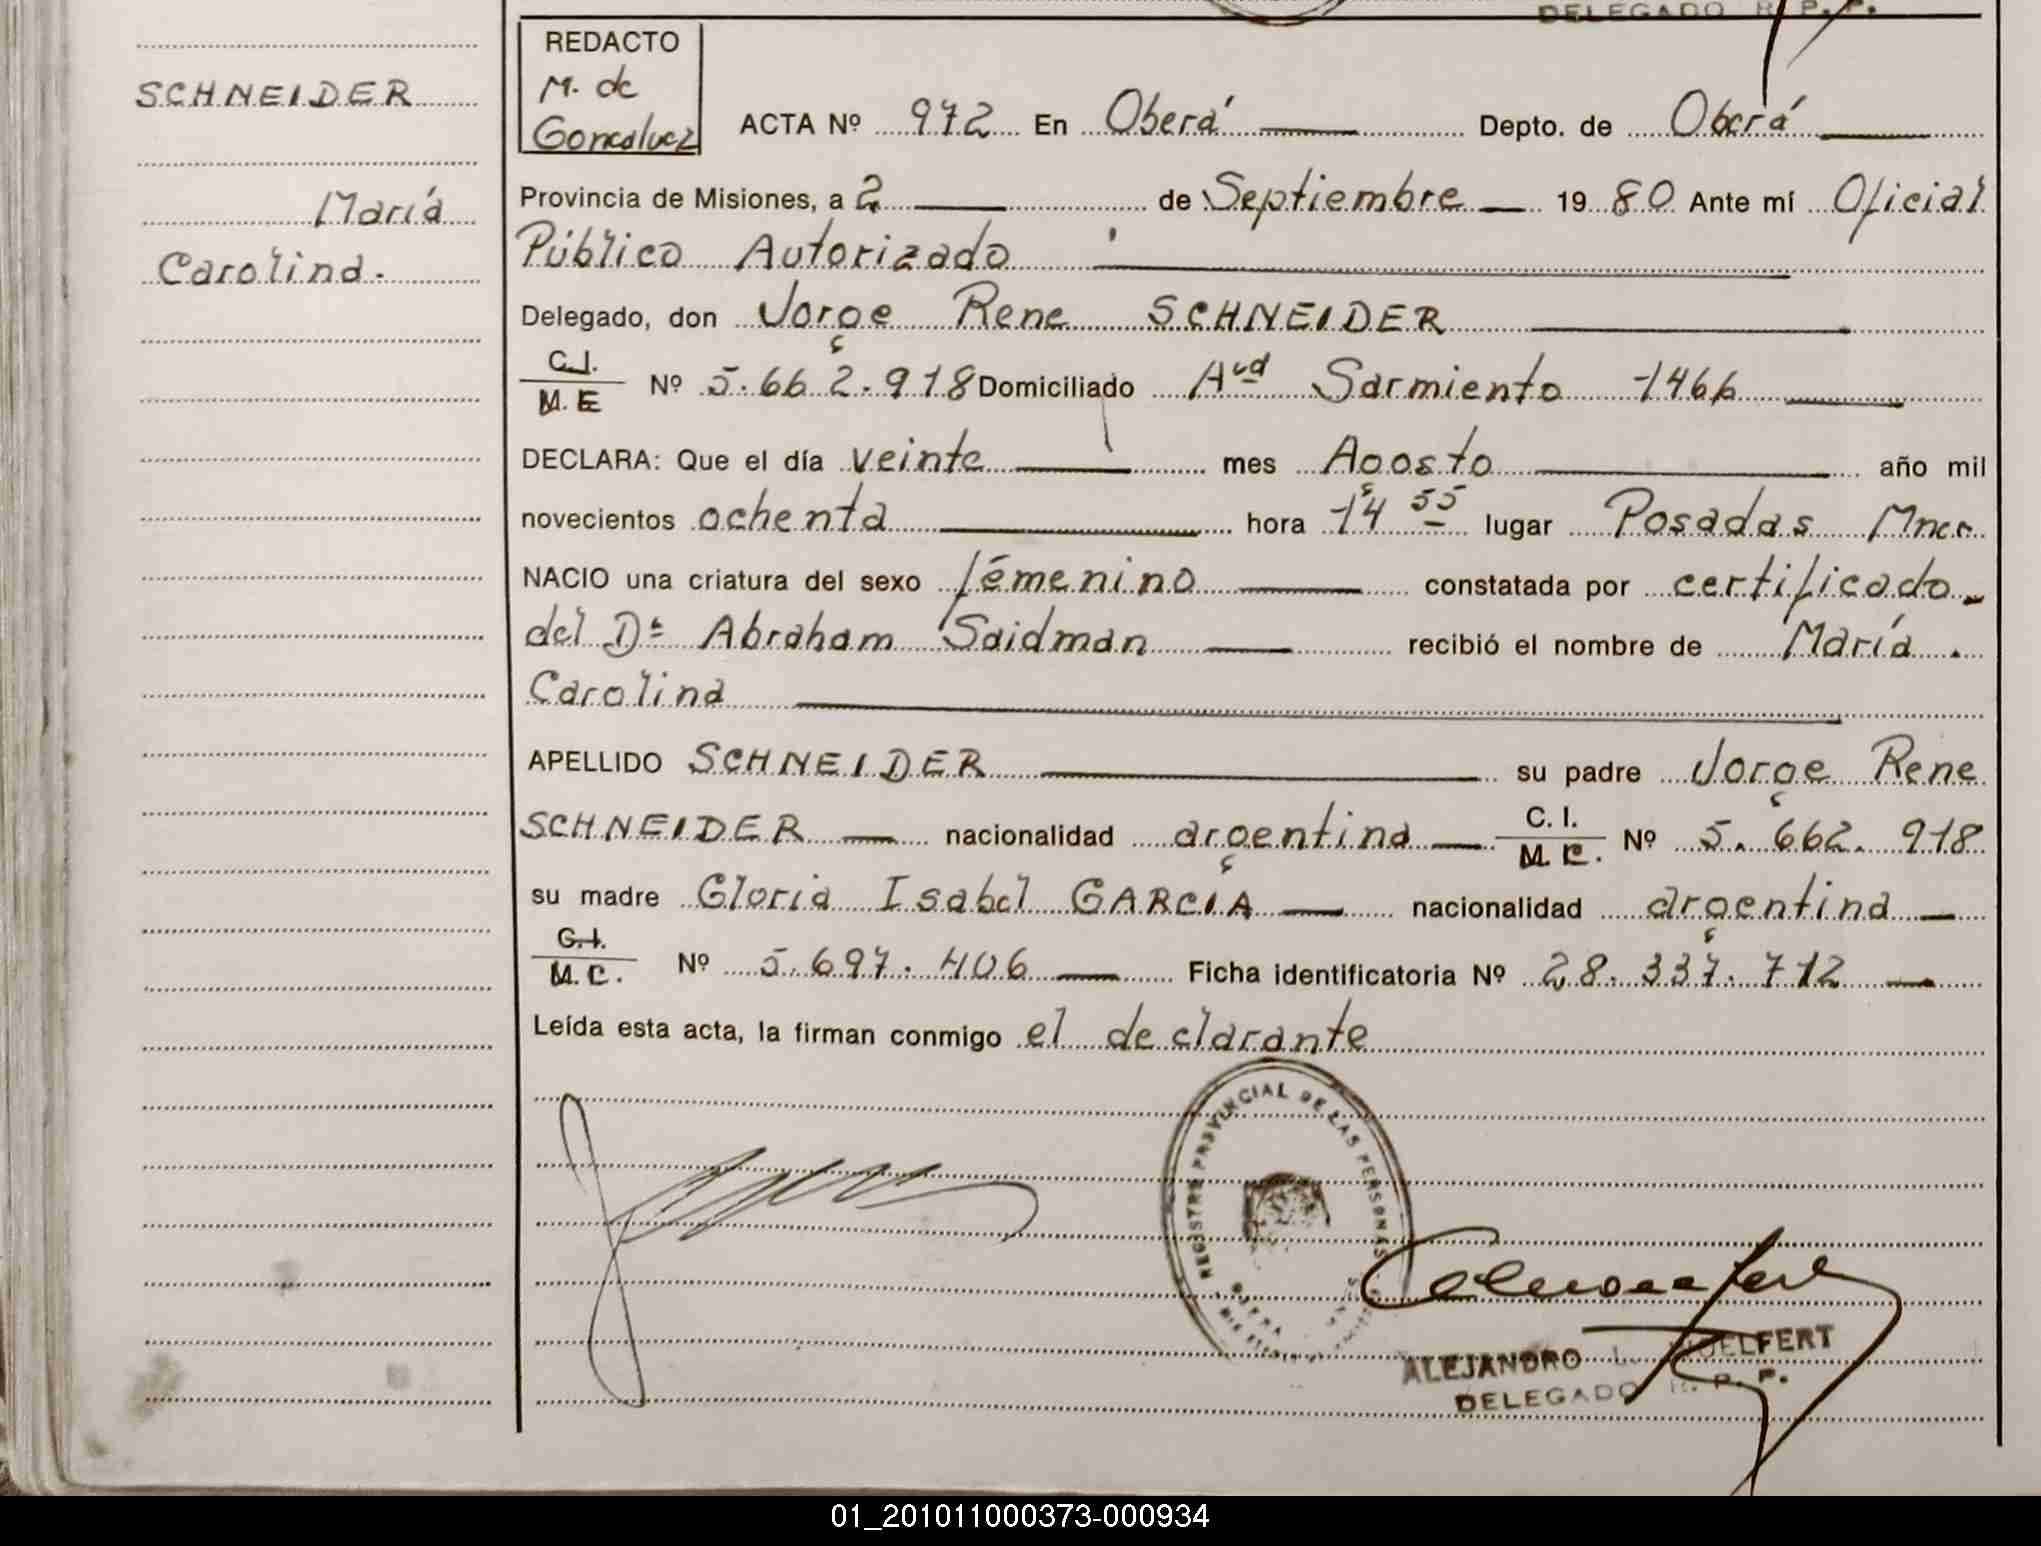 DELEGADO R. P. P.
SCHNEIDER
María
Carolina.
REDACTO
M. de
Goncalvez
ACTA Nº 972 En Oberá Depto. de Oberá
Provincia de Misiones, a 2 de Septiembre 19 80 Ante mí Oficial
Público Autorizado
Delegado, don Jorge Rene SCHNEIDER
C.I.
M.E
Nº 5.662.918 Domiciliado Avd Sarmiento 1466
DECLARA: Que el día veinte mes Agosto año mil
novecientos ochenta hora 14 55 lugar Posadas Mnes.
NACIO una criatura del sexo fémenino constatada por certificado
del Dr Abraham Saidman recibió el nombre de María
Carolina
APELLIDO SCHNEIDER su padre Jorge Rene
SCHNEIDER nacionalidad argentina C. I.
M. E. Nº 5.662.918
su madre Gloria Isabel GARCÍA nacionalidad argentina
C.I.
M.C. Nº 5.697.406 Ficha identificatoria Nº 28.337.712
Leída esta acta, la firman conmigo el declarante
REGISTRO PROVINCIAL DE LAS PERSONAS
ALEJANDRO L.
DELEGADO R. P. P.
01_201011000373-000934